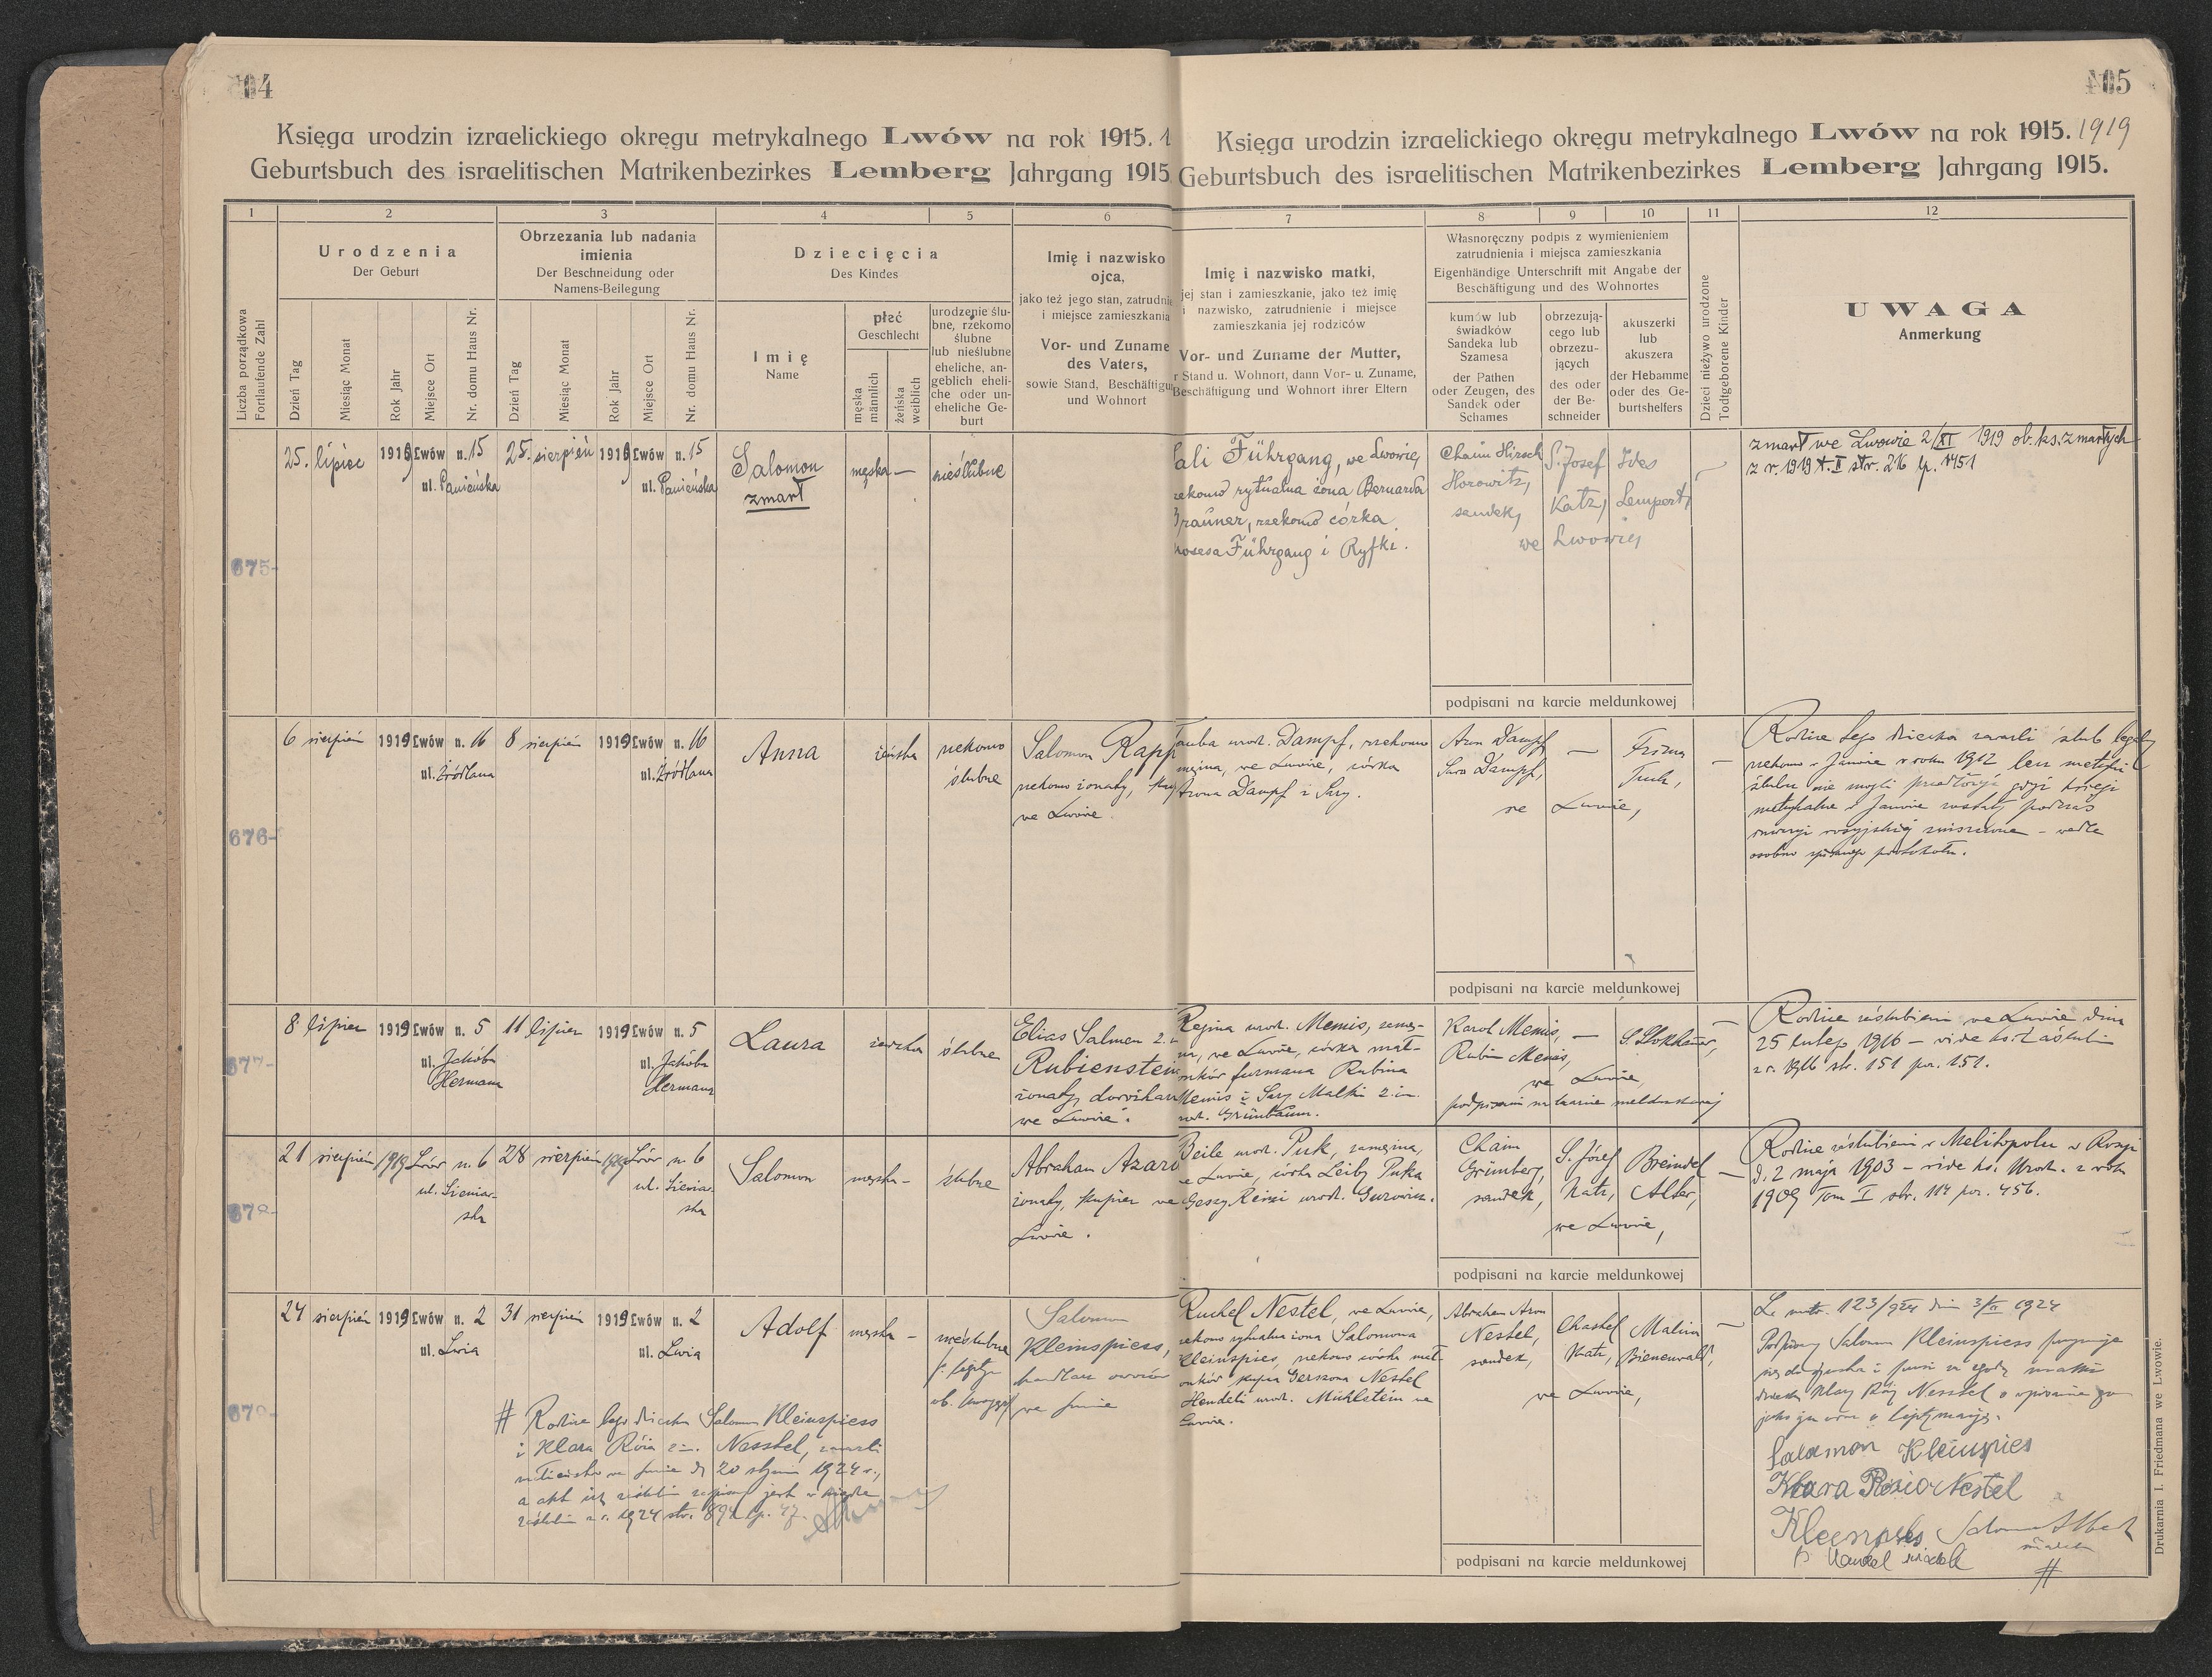 404
Księga urodzin izraelickiego okręgu metrykalnego Lwów na rok 1915. 1
Geburtsbuch des israelitischen Matrikenbezirkes Lemberg Jahrgang 1915
1 2 3 4 5 6
Liczba porządkowa
Fortlaufende Zahl
Urodzenia
Der Geburt
Obrzezania lub nadania
imienia
Der Beschneidung oder
Namens-Beilegung
Dziecięcia
Des Kindes
Dzień Tag
Miesiąc Monat
Rok Jahr
Miejsce Ort
Nr. domu Haus Nr.
Dzień Tag
Miesiąc Monat
Rok Jahr
Miejsce Ort
Nr. domu Haus Nr.
Imię
Name
płeć
Geschlecht
męska
männlich
żeńska
weiblich
urodzenie ślu-
bne, rzekomo
ślubne
lub nieślubne
eheliche, an-
geblich eheli-
che oder un-
eheliche Ge-
burt
Imię i nazwisko
ojca,
jako też jego stan, zatrudnie
i miejsce zamieszkania
Vor- und Zuname
des Vaters,
sowie Stand, Beschäftigun
und Wohnort
675-
25. lipiec 1919 Lwów n. 15 25. sierpień 1919 Lwów n. 15
ul. Panieńska ul. Panieńska
Salomon
zmarł
męska —
nieślubne
676-
6 sierpień 1919 Lwów n. 16 8 sierpień 1919 Lwów n. 16
ul. Źródlana ul. Źródlana
Anna
żeńska
rzekomo
ślubne
Salomon Rapp
rzekomo żonaty,
we Lwowie
677-
8 lipiec 1919 Lwów n. 5 11 lipiec 1919 Lwów n. 5
ul. Jakóba ul. Jakóba
Hermana Hermana
Laura
żeńska
ślubne
Elias Salmen
Rubienstein
żonaty, dorożkarz
we Lwowie.
678-
21 sierpień 1919 Lwów n. 6 28 sierpień 1919 Lwów n. 6
ul. Sieniaw- ul. Sieniaw-
ska ska
Salomon
męska -
ślubne
Abraham Azar
żonaty, kupiec we
Lwowie.
679-
24 sierpień 1919 Lwów n. 2 31 sierpień 1919 Lwów n. 2
ul. Lwia ul. Lwia
Adolf
męska -
nieślubne
Salomon
Kleinspiess,
handlarz owoców
we Lwowie
# Rodzice tego dziecka Salomon Kleinspiess
i Klara Róża Nesstel, zawarli
we Lwowie 20 1924 r.,
a akt ich zaślubin zapisany jest w księdze
zaślubin z r. 1924 str. 47.
405
Księga urodzin izraelickiego okręgu metrykalnego Lwów na rok 1915. 1919
Geburtsbuch des israelitischen Matrikenbezirkes Lemberg Jahrgang 1915.
7 8 9 10 11 12
Imię i nazwisko matki,
jej stan i zamieszkanie, jako też imię
i nazwisko, zatrudnienie i miejsce
zamieszkania jej rodziców
Vor- und Zuname der Mutter,
r Stand u. Wohnort, dann Vor- u. Zuname,
Beschäftigung und Wohnort ihrer Eltern
Własnoręczny podpis z wymienieniem
zatrudnienia i miejsca zamieszkania
Eigenhändige Unterschrift mit Angabe der
Beschäftigung und des Wohnortes
kumów lub
świadków
Sandeka lub
Szamesa
der Pathen
oder Zeugen, des
Sandek oder
Schames
obrzezują-
cego lub
obrzezu-
jących
des oder
der Be-
schneider
akuszerki
lub
akuszera
der Hebamme
oder des Ge-
burtshelfers
Dzieci nieżywo urodzone
Todtgeborene Kinder
UWAGA
Anmerkung
ali Führgang, we Lwowie,
rzekomo rytualna żona Bernarda
Brauner, rzekomo córka
Mosesa Führgang i Ryfki.
Chaim Hirsch
Horowitz,
sandek,
S. Josef
Katz,
Ides
Lempert,
we Lwowie,
zmarł we Lwowie 2/XI 1919 ob. ks. zmarłych
z r. 1919 t. II str. 216 lp. 1451
podpisani na karcie meldunkowej
Tauba urod. Dampf, rzekomo
mężna, we Lwowie, córka
Arona Dampf i Sary.
Aron Dampf,
Sara Dampf,
—
we Lwowie,
Rodzice tego dziecka zawarli ślub legalny
rzekomo w Janowie w roku 1912 lecz metryki
ślubu nie mogli przedłożyć gdyż księgi
metrykalne w Janowie zostały podczas
inwazyi rosyjskiej zniszczone – wedle
osobno spisanego protokołu.
podpisani na karcie meldunkowej
Regina urod. Memis, zamęż-
na, we Lwowie, córka mał-
żonków furmana Rubina
Memis i Sary Malki 2 im.
urod. Grünbaum.
Karol Memis,
Rubin Memis,
—
we Lwowie,
podpisani na karcie meldunkowej
Rodzice zaślubieni we Lwowie dnia
25 lutego 1916 – vide ks. zaślubin
z r. 1916 str. 151 poz. 151.
Beile urod. Puk, zamężna,
we Lwowie, córka Leiby Puka
Gessy Reisi urod. Gurowicz.
Chaim
Grünberg,
sandek,
S. Józef
Katz,
Breindel
Alter,
we Lwowie,
Rodzice zaślubieni w Melitopolu w Rosyi
d. 2 maja 1903 – vide ks. Urodz. z roku
1909 Tom I str. 114 poz. 456.
podpisani na karcie meldunkowej
Ruchel Nestel, we Lwowie,
rzekomo rytualna żona Salomona
Kleinspies, rzekomo córka mał-
żonków kupca Gersona Nestel
Hendeli urod. Mühlstein we
Lwowie.
Abraham Aron
Nestel,
sandek,
Chaskel
Katz,
Malwina
Bienenwald,
we Lwowie,
123/924 1924
Podpisany Salomon Kleinspiess przyznaje
się do ojcostwa i prosi za zgodą matki
dziecka Klary Róży Nesstel o wpisanie go
jako ojca
Salamon Kleinspies
Klara Rozia Nestel
Kleinspies
#
podpisani na karcie meldunkowej
Drukarnia I. Friedmana we Lwowie.